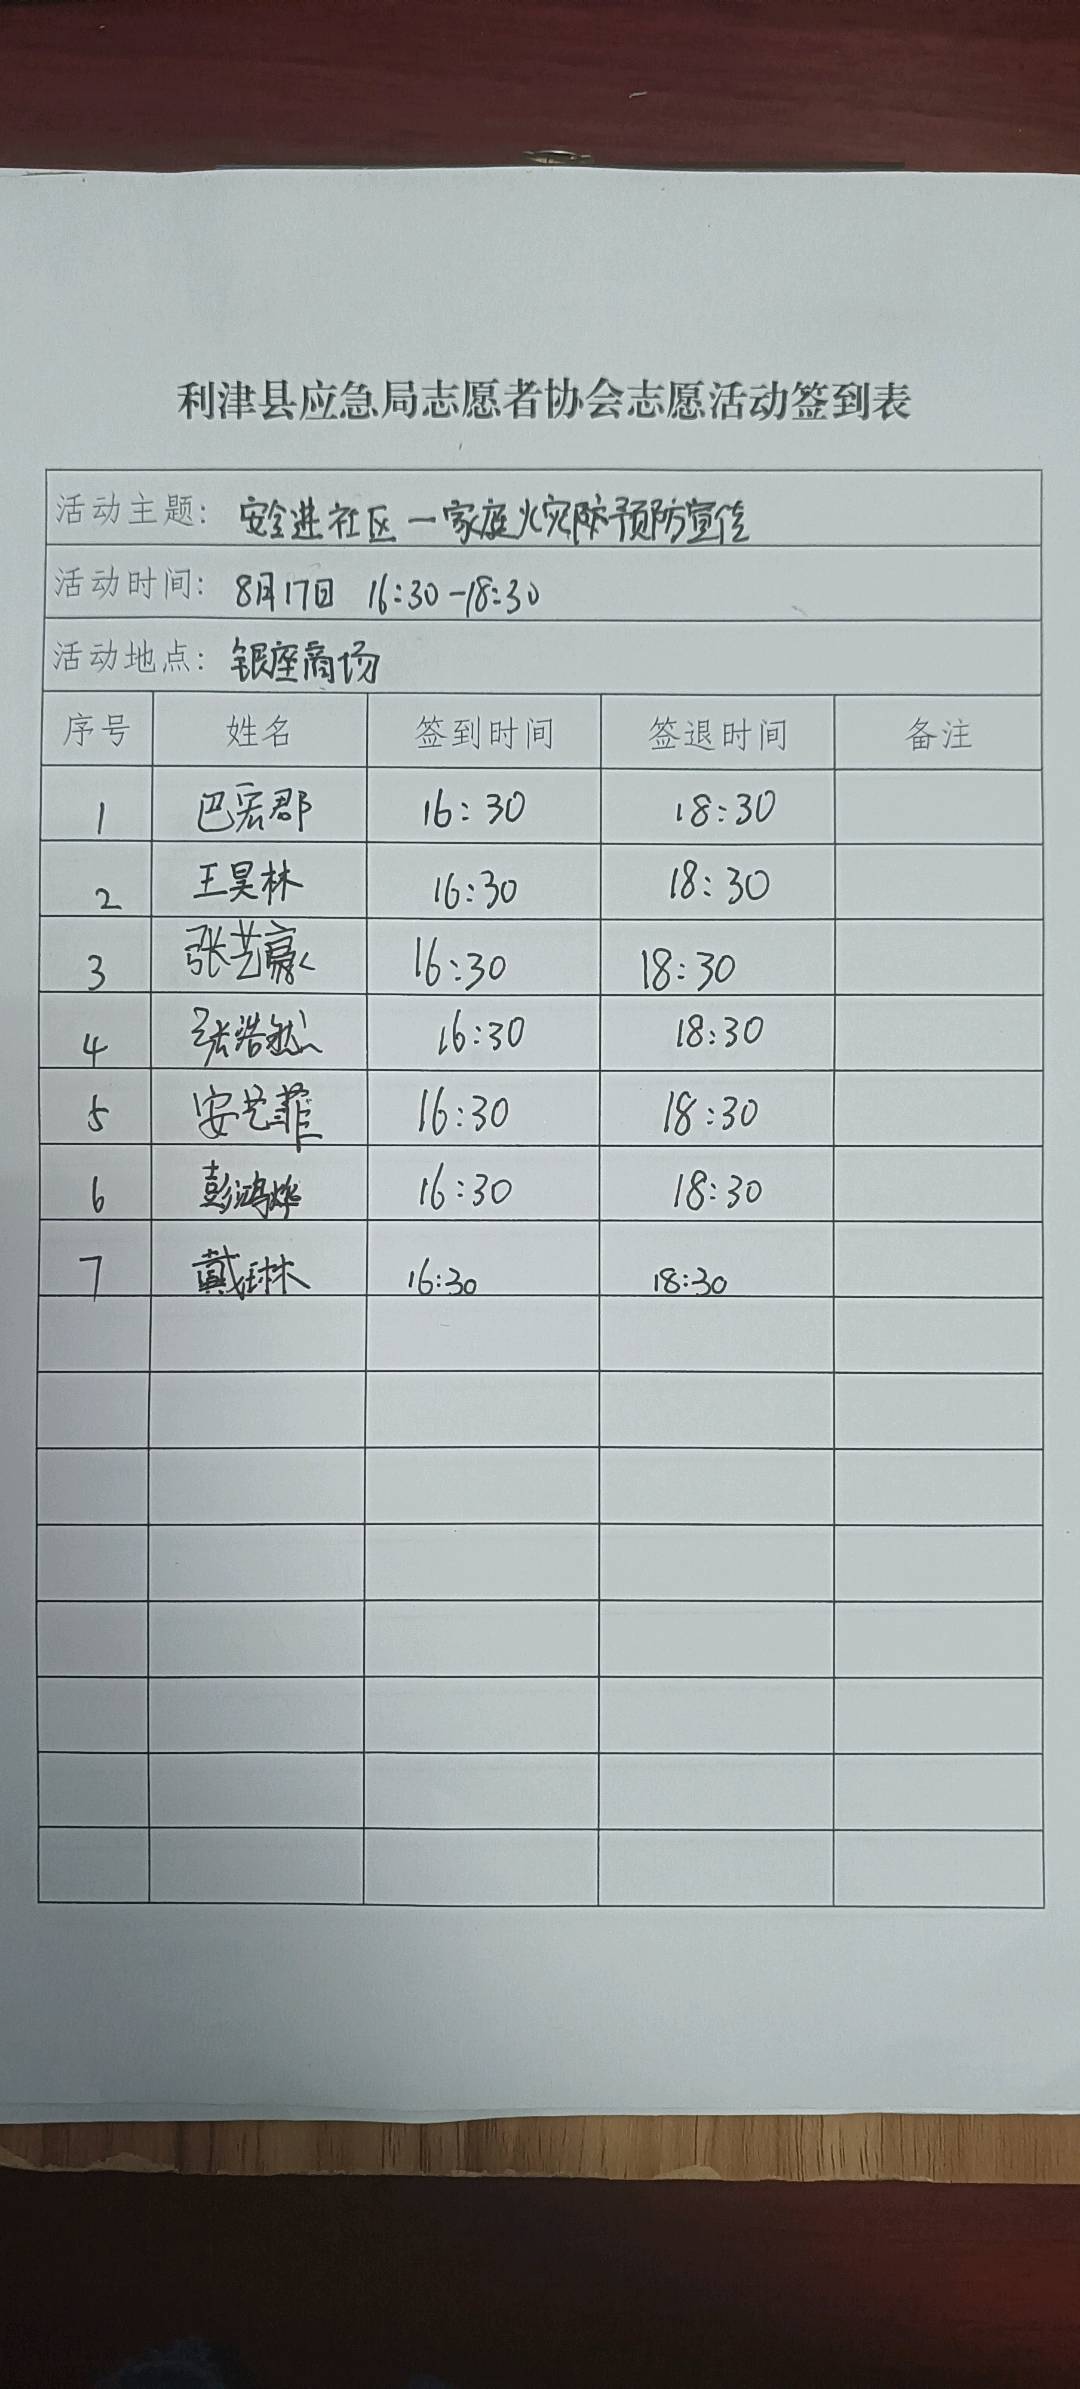 利津县应急局志愿者协会志愿活动签到表
活动主题：安全进社区一家庭火灾防预防宣传
活动时间：8月17日 16:30-18:30
活动地点：银座商场
序号 姓名 签到时间 签退时间 备注
1 巴宏郡 16:30 18:30
2 王昊林 16:30 18:30
3 张艺豪 16:30 18:30
4 张浩然 16:30 18:30
5 安艺菲 16:30 18:30
6 彭鸿烨 16:30 18:30
7 戴琳 16:30 18:30